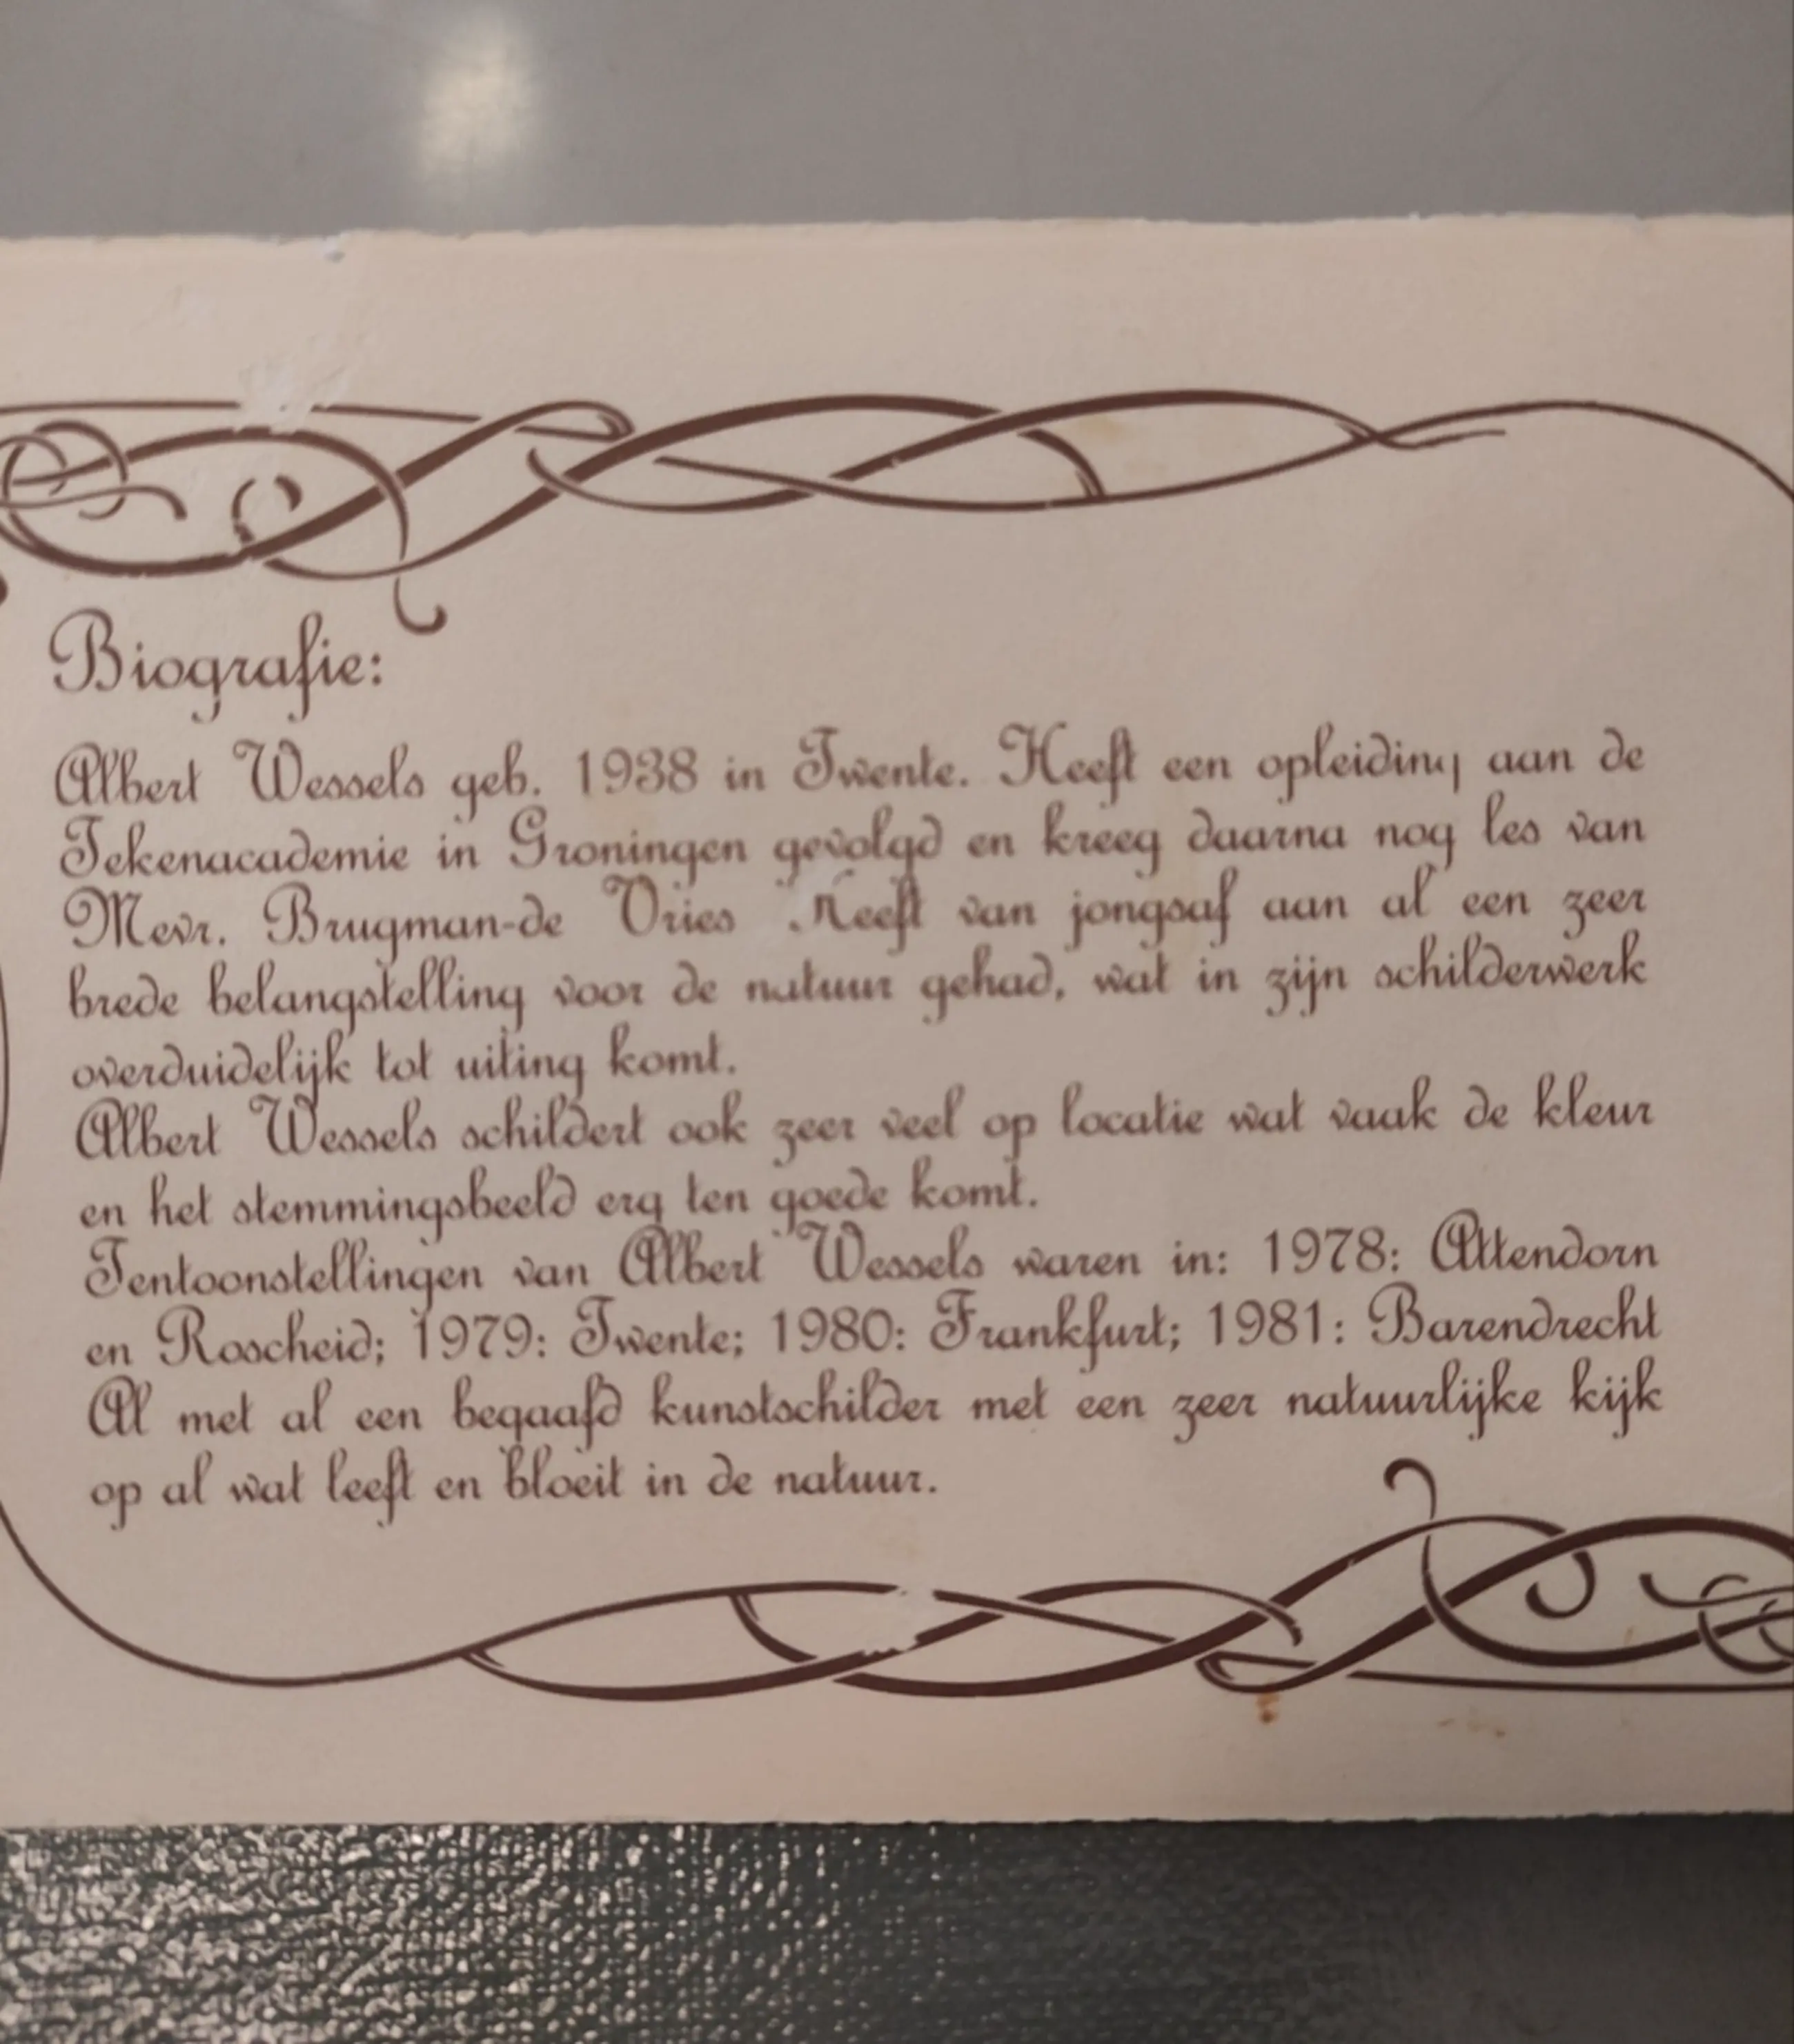 Biografie:
Albert Wessels geb. 1938 in Twente. Heeft een opleiding aan de
Tekenacademie in Groningen gevolgd en kreeg daarna nog les van
Mevr. Brugman-de Vries Heeft van jongsaf aan al een zeer
brede belangstelling voor de natuur gehad, wat in zijn schilderwerk
overduidelijk tot uiting komt.
Albert Wessels schildert ook zeer veel op locatie wat vaak de kleur
en het stemmingsbeeld erg ten goede komt.
Tentoonstellingen van Albert Wessels waren in: 1978: Attendorn
en Roscheid; 1979: Twente; 1980: Frankfurt; 1981: Barendrecht
Al met al een begaafd kunstschilder met een zeer natuurlijke kijk
op al wat leeft en bloeit in de natuur.